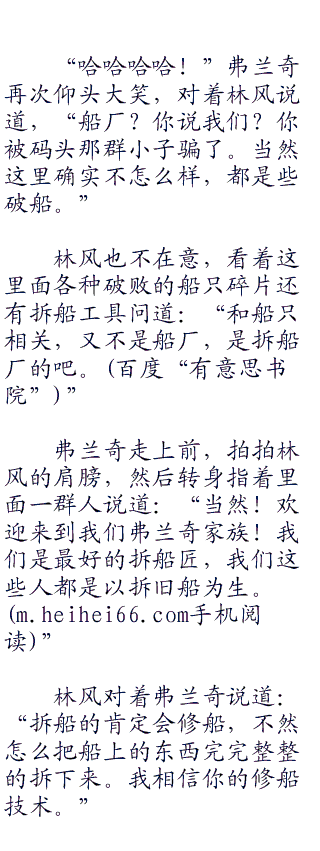 “哈哈哈哈！”弗兰奇
再次仰头大笑，对着林风说
道，“船厂？你说我们？你
被码头那群小子骗了。当然
这里确实不怎么样，都是些
破船。”
林风也不在意，看着这
里面各种破败的船只碎片还
有拆船工具问道：“和船只
相关，又不是船厂，是拆船
厂的吧。(百度“有意思书
院”)”
弗兰奇走上前，拍拍林
风的肩膀，然后转身指着里
面一群人说道：“当然！欢
迎来到我们弗兰奇家族！我
们是最好的拆船匠，我们这
些人都是以拆旧船为生。
(m.heihei66.com手机阅
读)”
林风对着弗兰奇说道：
“拆船的肯定会修船，不然
怎么把船上的东西完完整整
的拆下来。我相信你的修船
技术。”